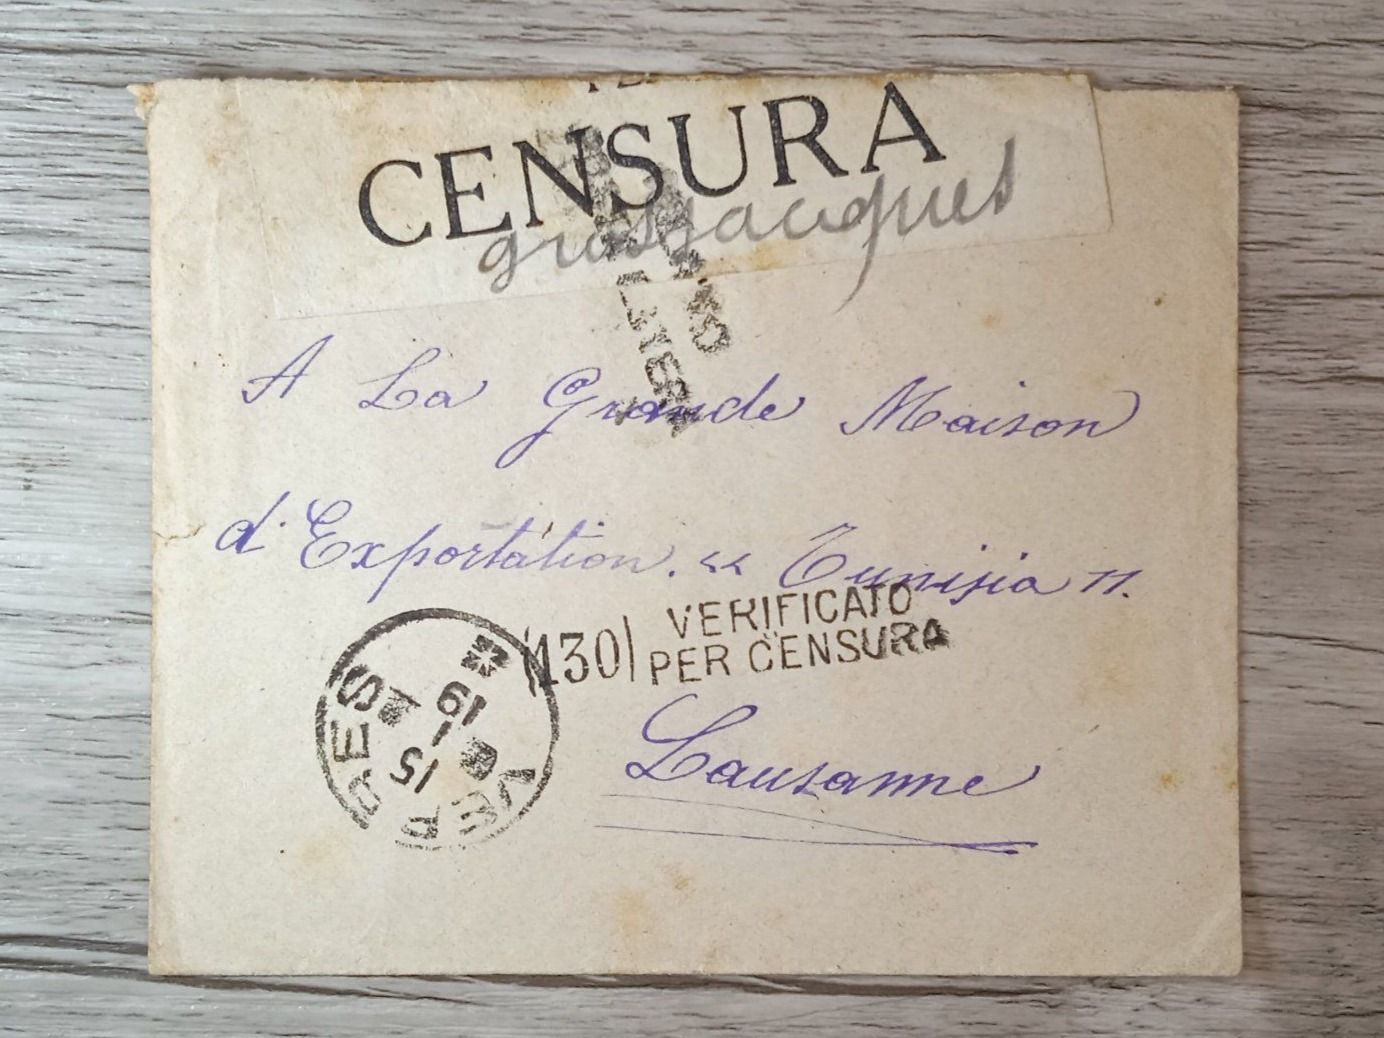 CENSURA
grosjacques
A La Grande Maison
d'Exportation. « Tunisia ».
(130) VERIFICATO
PER CENSURA
Lausanne
15 - 1 19